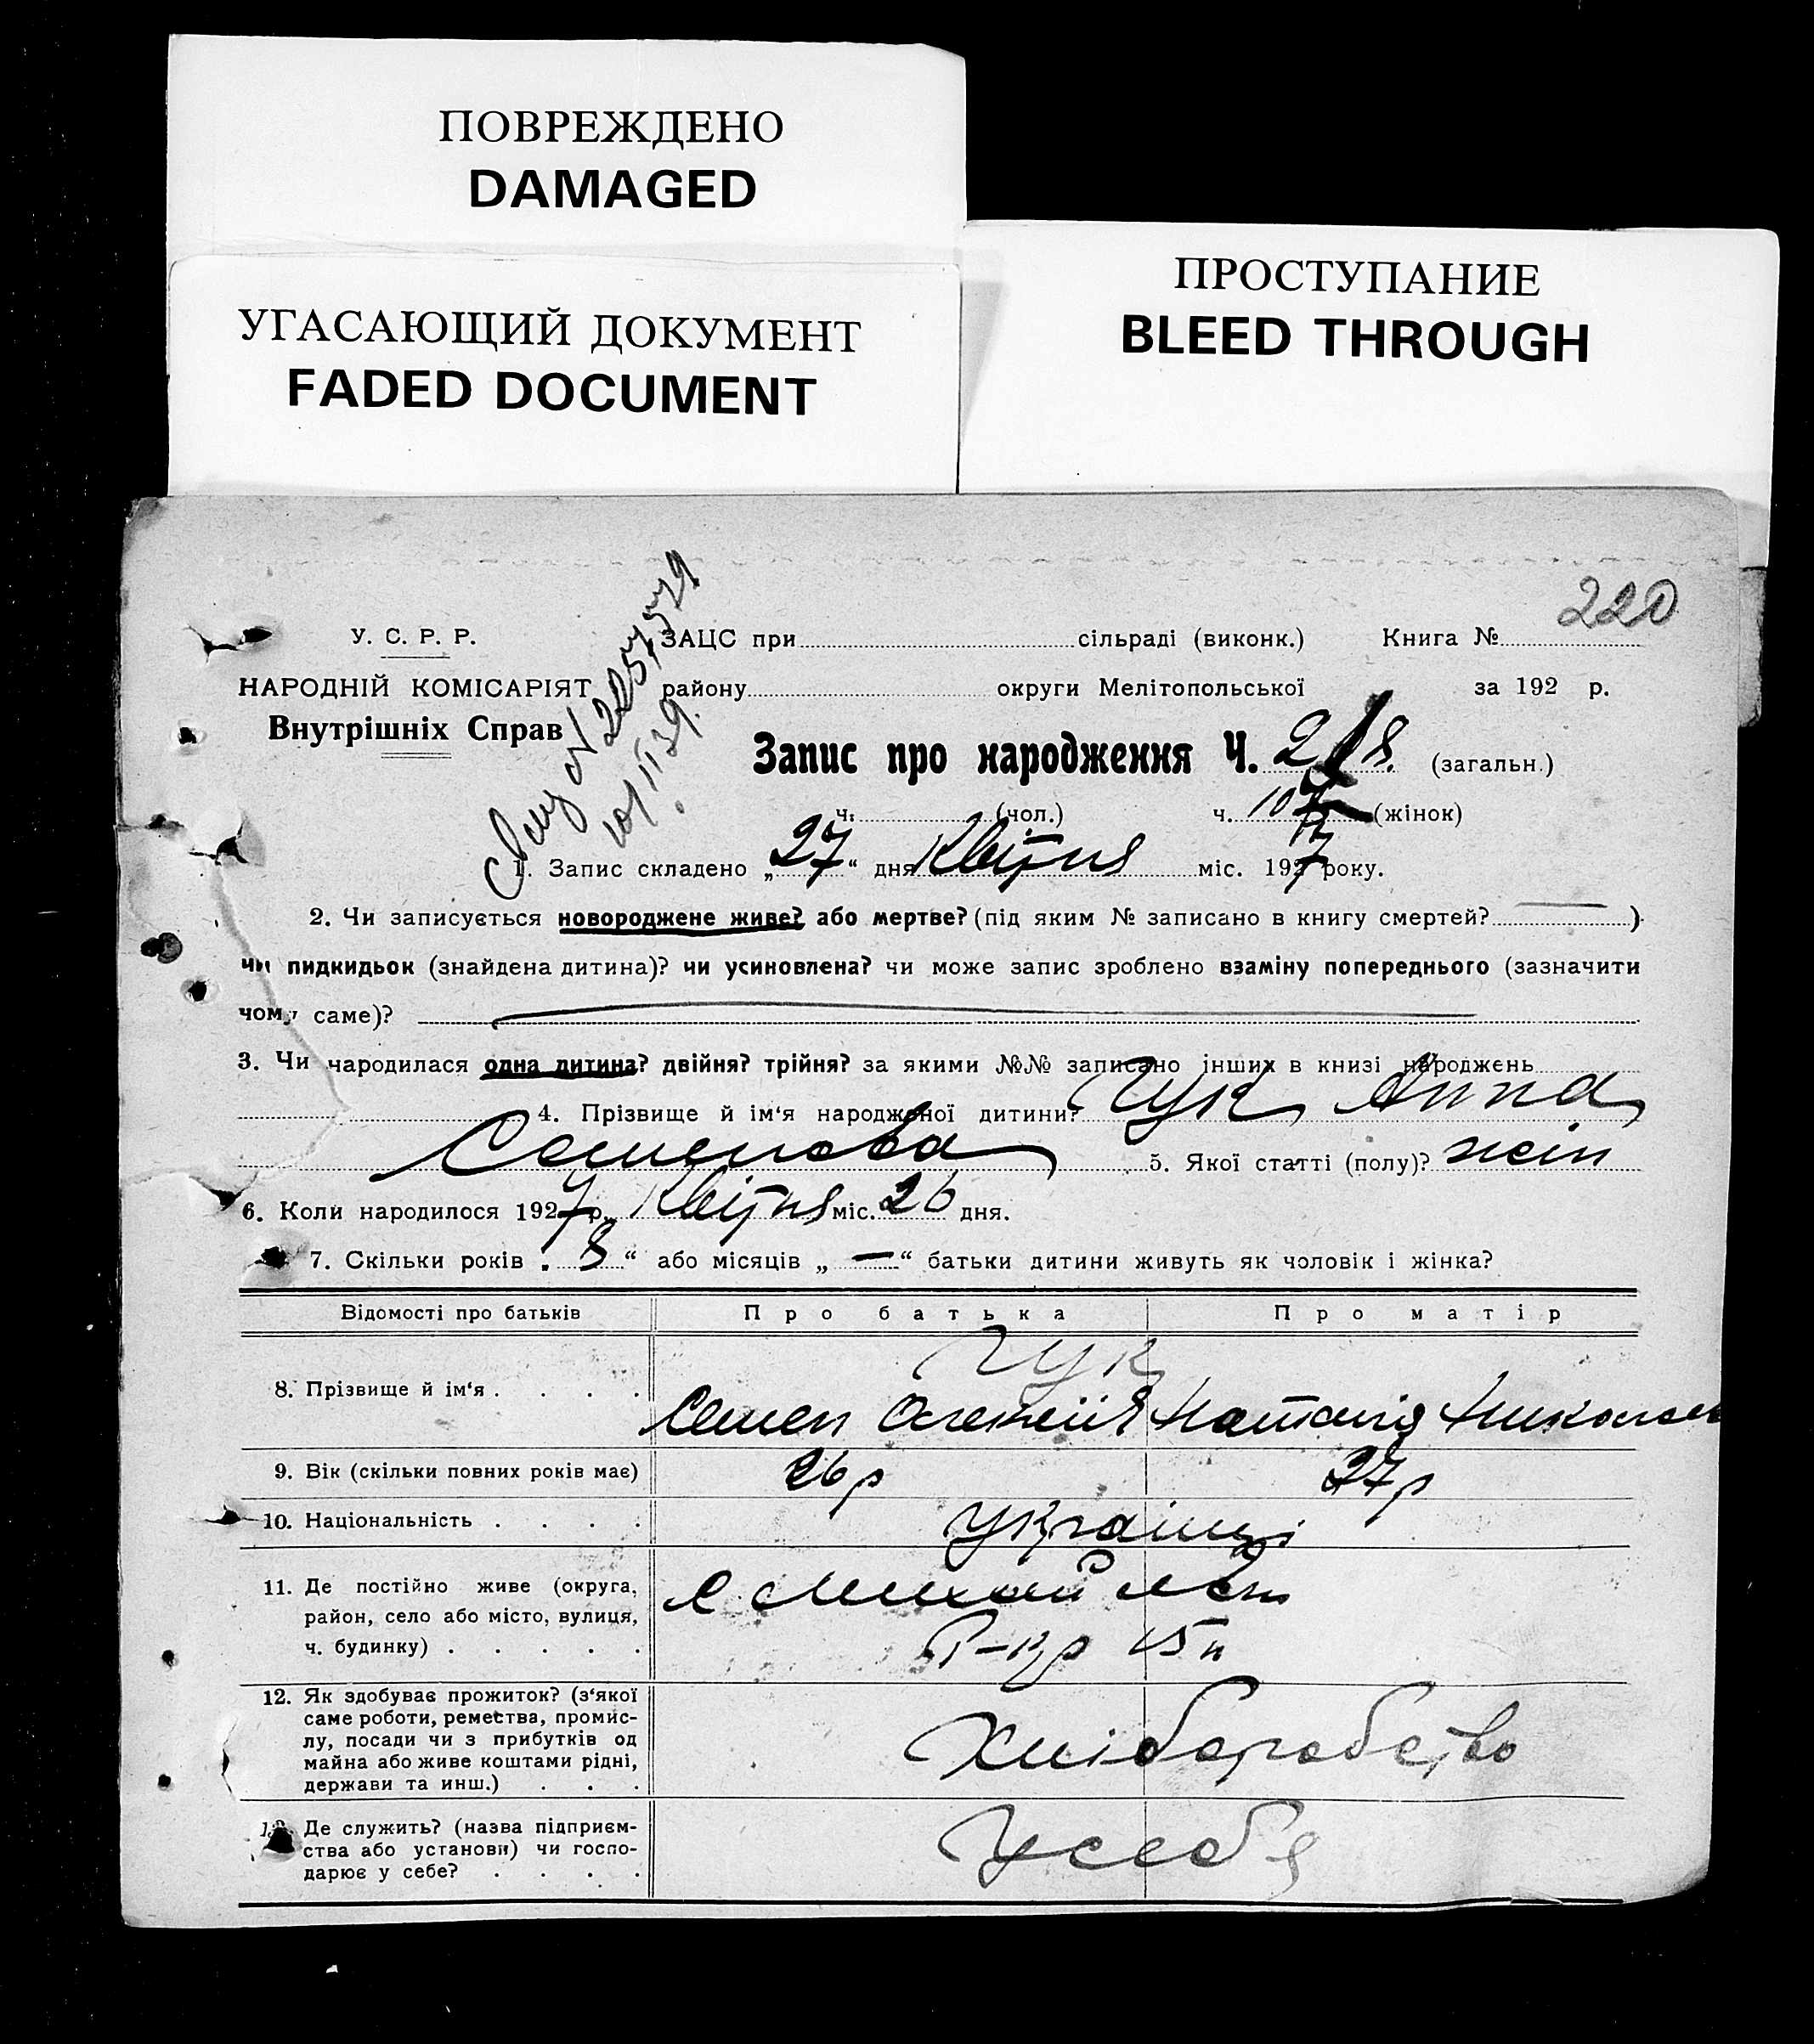 ПОВРЕЖДЕНО
DAMAGED
УГАСАЮЩИЙ ДОКУМЕНТ
FADED DOCUMENT
ПРОСТУПАНИЕ
BLEED THROUGH
220
У. С. Р. Р.
НАРОДНІЙ КОМІСАРІЯТ
Внутрішніх Справ
ЗАЦС при сільраді (виконк.) Книга №
району округи Мелітопольської за 192 р.
Запис про народження Ч. 218. (загальн.)
ч. (чол.) ч. 107 (жінок)
1. Запис складено „27“ дня Квітня міс. 1927 року.
2. Чи записується новороджене живе? або мертве? (під яким № записано в книгу смертей? —)
чи пидкидьок (знайдена дитина)? чи усиновлена? чи може запис зроблено взаміну попереднього (зазначити
чому саме)?
3. Чи народилася одна дитина? двійня? трійня? за якими №№ записано інших в книзі народжень
4. Прізвище й ім‘я народженої дитини? Гук Анна
Семенова 5. Якої статті (полу)? жін
6. Коли народилося 1927 р. Квітня міс. 26 дня.
7. Скільки років „8“ або місяців „—“ батьки дитини живуть як чоловік і жінка?
Відомості про батьків Про батька Про матір
8. Прізвище й ім‘я . . . . Гук
Семен Наталія
9. Вік (скільки повних років має) 26 р 27 р
10. Національність . . . . Українці
11. Де постійно живе (округа,
район, село або місто, вулиця,
ч. будинку) . . . . .
12. Як здобуває прожиток? (з‘якої
саме роботи, ремества, промис-
лу, посади чи з прибутків од
майна або живе коштами рідні,
держави та инш.) . . .
Хліборобство
13. Де служить? (назва підприєм-
ства або установи) чи госпо-
дарює у себе? . . . .
У себя